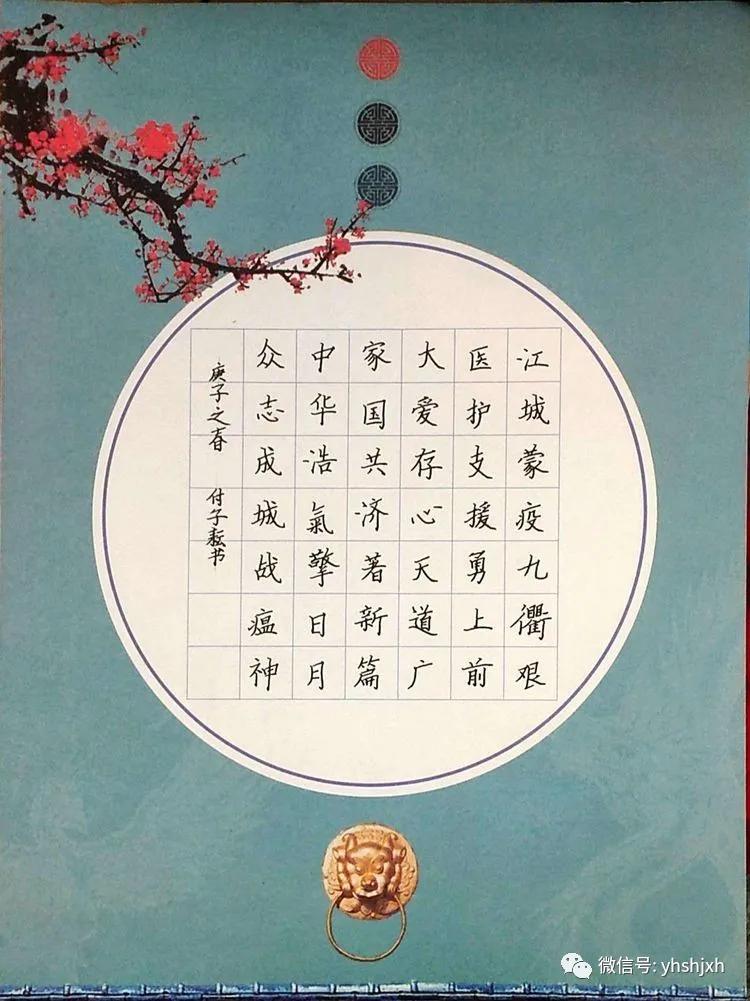 江城蒙疫九衢艰
医护支援勇上前
大爱存心天道广
家国共济著新篇
中华浩氣擎日月
众志成城战瘟神
庚子之春 付子耘书
微信号: yhshjxh